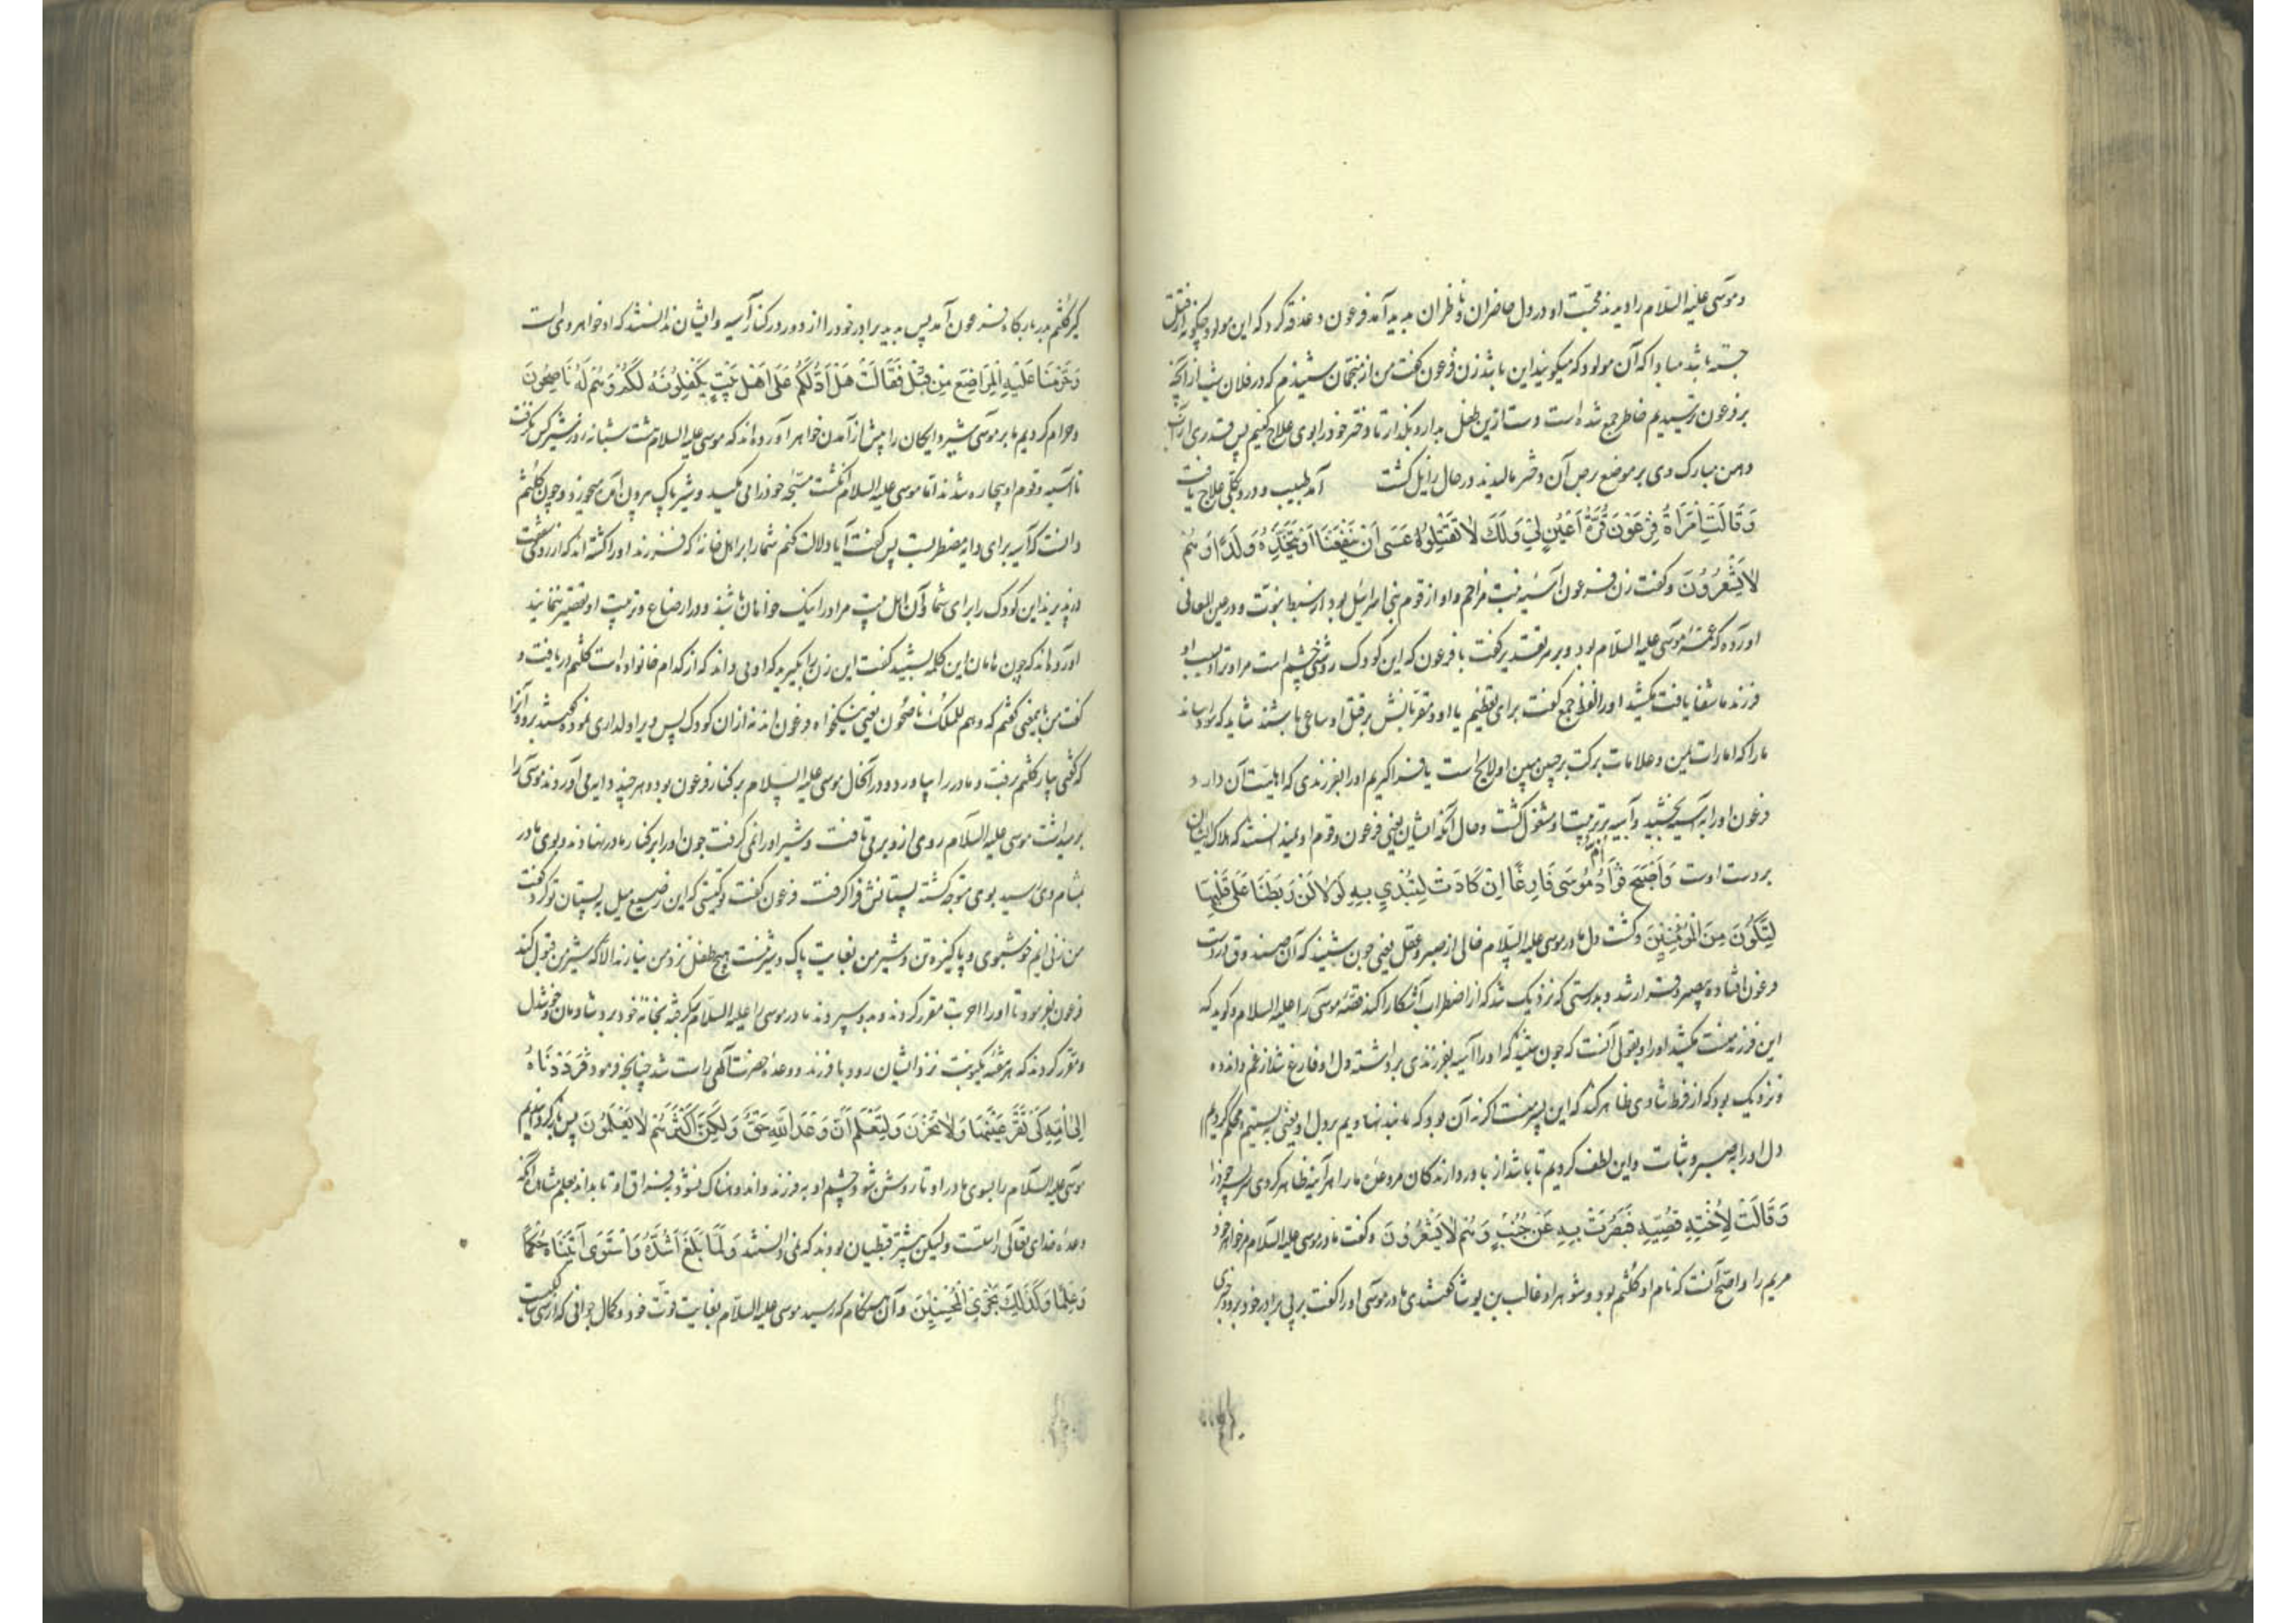 و موسی علیه السلام را دیدند محبت او در دل حاضران و ناظران پدید آمد فرعون دغدغه کرد که این مولود چگونه از قتل
جسته باشد مبادا که آن مولود که میگویند این باشد زن فرعون گفت من از منجمان شنیدم که در فلان شب از آنچه
بر فرعون ترسیدیم خاطر جمع شده است دست ازین طفل بدار و بگذار تا دختر خود را بوی علاج کنیم پس قدری از آب
دهن مبارک وی بر موضع برص آن دختر مالیدند در حال زایل گشت آمد طبیب و درد بکلی علاج یافت
وَقَالَتِ امْرَأَةُ فِرْعَوْنَ قُرَّةُ أَعْيُنٍ لِي وَلَكَ لَا تَقْتُلُوهُ عَسَى أَنْ يَنْفَعَنَا أَوْ نَتَّخِذَهُ وَلَدًا وَهُمْ
لَا يَشْعُرُونَ و گفت زن فرعون آسیه بنت مزاحم و او از قوم بنی اسرائیل بود از سبط نبوت و در عین المعانی
آورده که عمه موسی علیه السلام بود و بر هر تقدیر گفت با فرعون که این کودک روشنی چشم است مرا و ترا بسبب او
فرزند ما شفا یافت مکشید او را لفظ جمع گفت برای تعظیم یا او و مقربانش بر قتل او ساعی باشند شاید که سود رساند
ما را که امارات یمن و علامات برکت بر جبین مبین او لایح است یا فرا گیریم او را بفرزندی که اهلیت آن دارد و
فرعون او را به آسیه بخشید و آسیه بتربیت او مشغول گشت و حال آنکه ایشان یعنی فرعون و قوم او نمیدانستند که هلاک ایشان
بر دست اوست وَأَصْبَحَ فُؤَادُ أُمِّ مُوسَى فَارِغًا إِنْ كَادَتْ لَتُبْدِي بِهِ لَوْلَا أَنْ رَبَطْنَا عَلَى قَلْبِهَا
لِتَكُونَ مِنَ الْمُؤْمِنِينَ و گشت دل مادر موسی علیه السلام خالی از صبر و عقل یعنی چون شنید که آن صندوق در دست
فرعون افتاده بی صبر و قرار شد و بدرستی که نزدیک شد که از اضطراب آشکارا کند قصه موسی را علیه السلام و گوید که
این فرزند منست مکشید او را و بقولی آنست که چون شنید که او را آسیه بفرزندی برداشته دل او فارغ شد از غم و اندوه
و نزدیک بود که از فرط شادی ظاهر کند که این پسر منست اگر نه آن بود که ما بند نهادیم بر دل او یعنی ببستیم و محکم کردیم
دل او را به صبر و ثبات و این لطف کردیم تا باشد از باور دارندگان مر وعده ما را هر آینه ظاهر کردی سر خود را
وَقَالَتْ لِأُخْتِهِ قُصِّيهِ فَبَصُرَتْ بِهِ عَنْ جُنُبٍ وَهُمْ لَا يَشْعُرُونَ و گفت مادر موسی علیه السلام مر خواهر خود
مریم را و اصح آنست که نام او کلثم بود و شوهر او غالب بن یوشا گفتندی مادر موسی او را گفت بر پی برادر خود برو و خبری
گیر کلثم بدر بارگاه فرعون آمد پس بدید برادر خود را از دور در کنار آسیه و ایشان ندانستند که او خواهر وی است
وَحَرَّمْنَا عَلَيْهِ الْمَرَاضِعَ مِنْ قَبْلُ فَقَالَتْ هَلْ أَدُلُّكُمْ عَلَى أَهْلِ بَيْتٍ يَكْفُلُونَهُ لَكُمْ وَهُمْ لَهُ نَاصِحُونَ
و حرام کردیم ما بر موسی شیر دایگان را پیش از آمدن خواهر آورده‌اند که موسی علیه السلام هشت شبانه روز شیر کس نگرفت
تا آسیه و قوم او بیچاره شدند اما موسی علیه السلام انگشت مسبحه خود را می مکید و شیر پاک بیرون آمده میخورد و چون کلثم
دانست که آسیه برای دایه مضطرست پس گفت آیا دلالت کنم شما را بر اهل خانه که فرزند او را کشته اند که از روی شفقت
در پذیرند این کودک را برای شما و آن اهل بیت مر او را نیک خواهان باشند و در ارضاع و تربیت او تقصیر ننمایند
آورده‌اند که چون هامان این کلمه بشنید گفت این زن را بگیرید که او می داند که از کدام خانواده است کلثم دریافت و
گفت من باین معنی گفتم که و هم للملک ناصحون یعنی نیکخواه فرعون اند نه از آن کودک پس ویرا دلداری نموده گفتند برو و آنرا
که گفتی بیار کلثم برفت و مادر را بیاورد و در آنحال موسی علیه السلام بر کنار فرعون بود و هر چند دایه می آوردند موسی را
بر میداشت موسی علیه السلام روی ازو بر می تافت و شیر او را نمی گرفت چون او را بر کنار مادر نهادند و بوی مادر
بمشام وی رسید بوی متوجه گشته پستانش فرا گرفت فرعون گفت تو کیستی که این رضیع میل به پستان تو کرد گفت
من زنی ام خوشبوی و پاکیزه تن و شیر من بغایت پاک و شیرینست هیچ طفل نزد من نیارند الا که شیر من قبول کند
فرعون بفرمود تا او را اجرت مقرر کردند و بدو سپردند مادر موسی را علیه السلام بگرفته بخانه خود برد شادمان و خوشدل
و مقرر کردند که هر هفته یکنوبت نزد ایشان رود با فرزند و وعده حضرت الهی راست شد چنانچه فرمود فَرَدَدْنَاهُ
إِلَى أُمِّهِ كَيْ تَقَرَّ عَيْنُهَا وَلَا تَحْزَنَ وَلِتَعْلَمَ أَنَّ وَعْدَ اللَّهِ حَقٌّ وَلَكِنَّ أَكْثَرَهُمْ لَا يَعْلَمُونَ پس باز گردانیدیم
موسی علیه السلام را بسوی مادر او تا روشن شود چشم او به فرزند و اندوهناک نشود به فراق او تا بداند بعلم مشاهده آنکه
وعده خدای تعالی راستست و لیکن بیشتر قبطیان بودند که نمی دانستند وَلَمَّا بَلَغَ أَشُدَّهُ وَاسْتَوَى آتَيْنَاهُ حُكْمًا
وَعِلْمًا وَكَذَلِكَ نَجْزِي الْمُحْسِنِينَ و آن هنگام که رسید موسی علیه السلام بغایت قوت خود و کمال جوانی که از سی